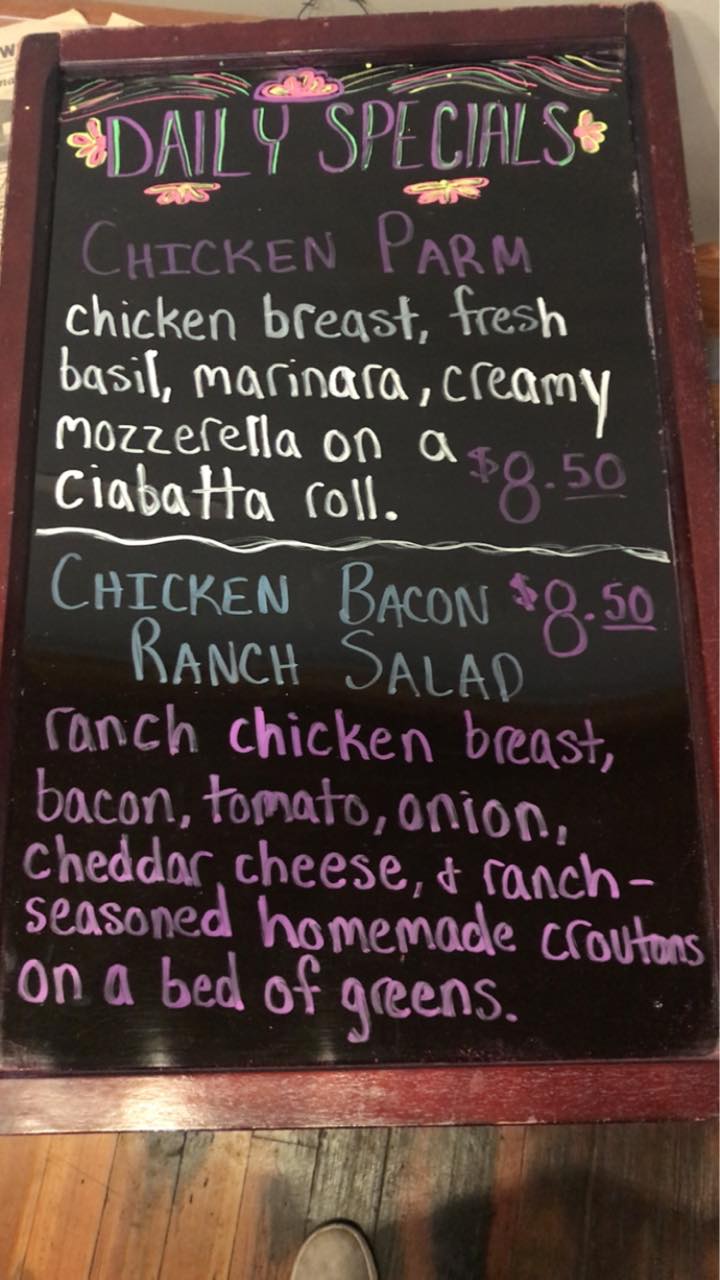 DAILY SPECIALS
CHICKEN PARM
chicken breast, fresh
basil, marinara, creamy
mozzerella on a
$8.50
ciabatta roll.
CHICKEN BACON $8.50
RANCH SALAD
ranch chicken breast,
bacon, tomato, onion,
cheddar cheese, & ranch-
seasoned homemade croutons
on a bed of greens.